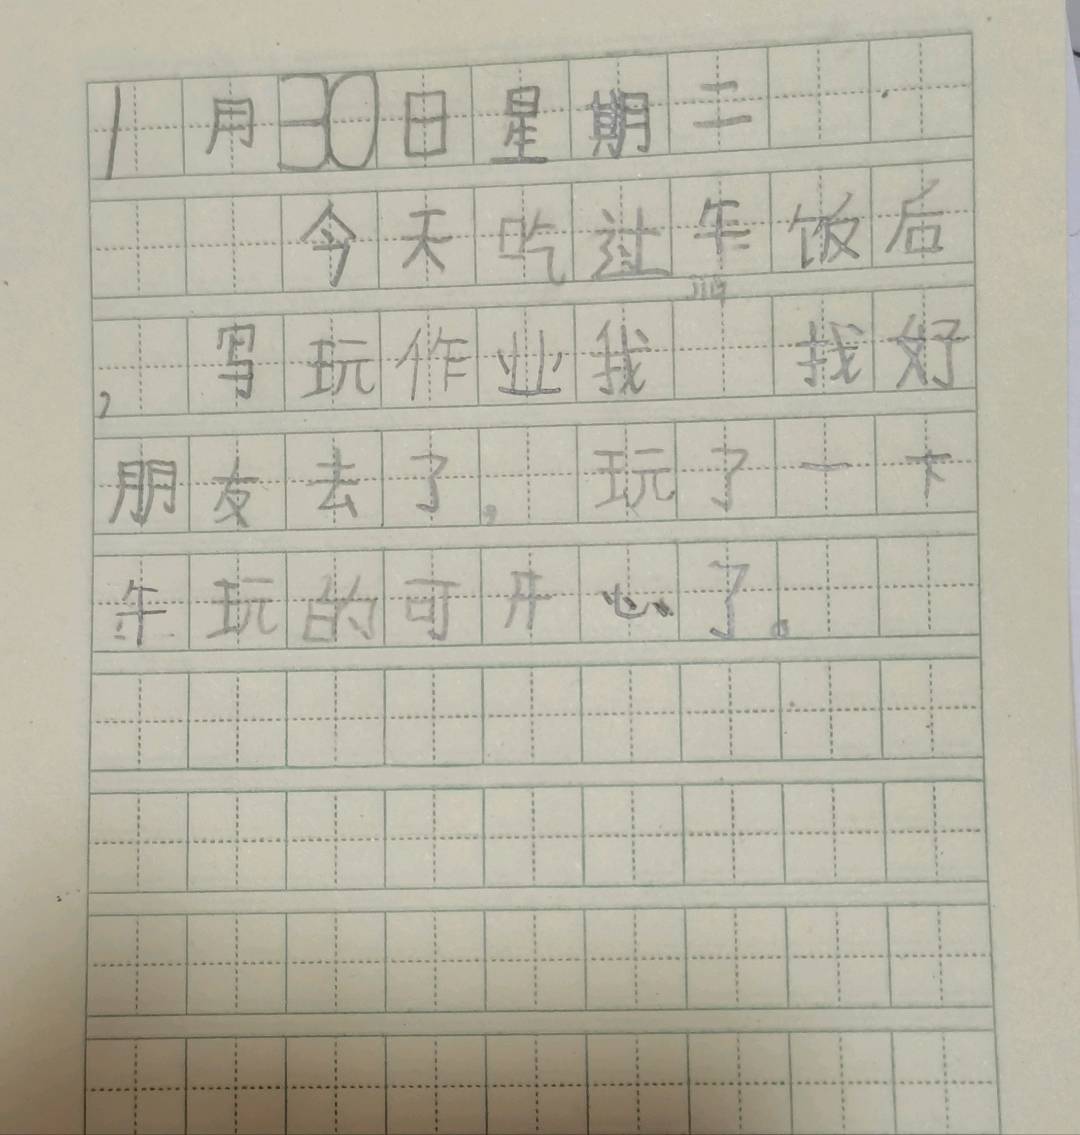 1月30日星期二
今天吃过午饭后
，写玩作业我 找好
朋友去了。玩了一下
午玩的可开心了。